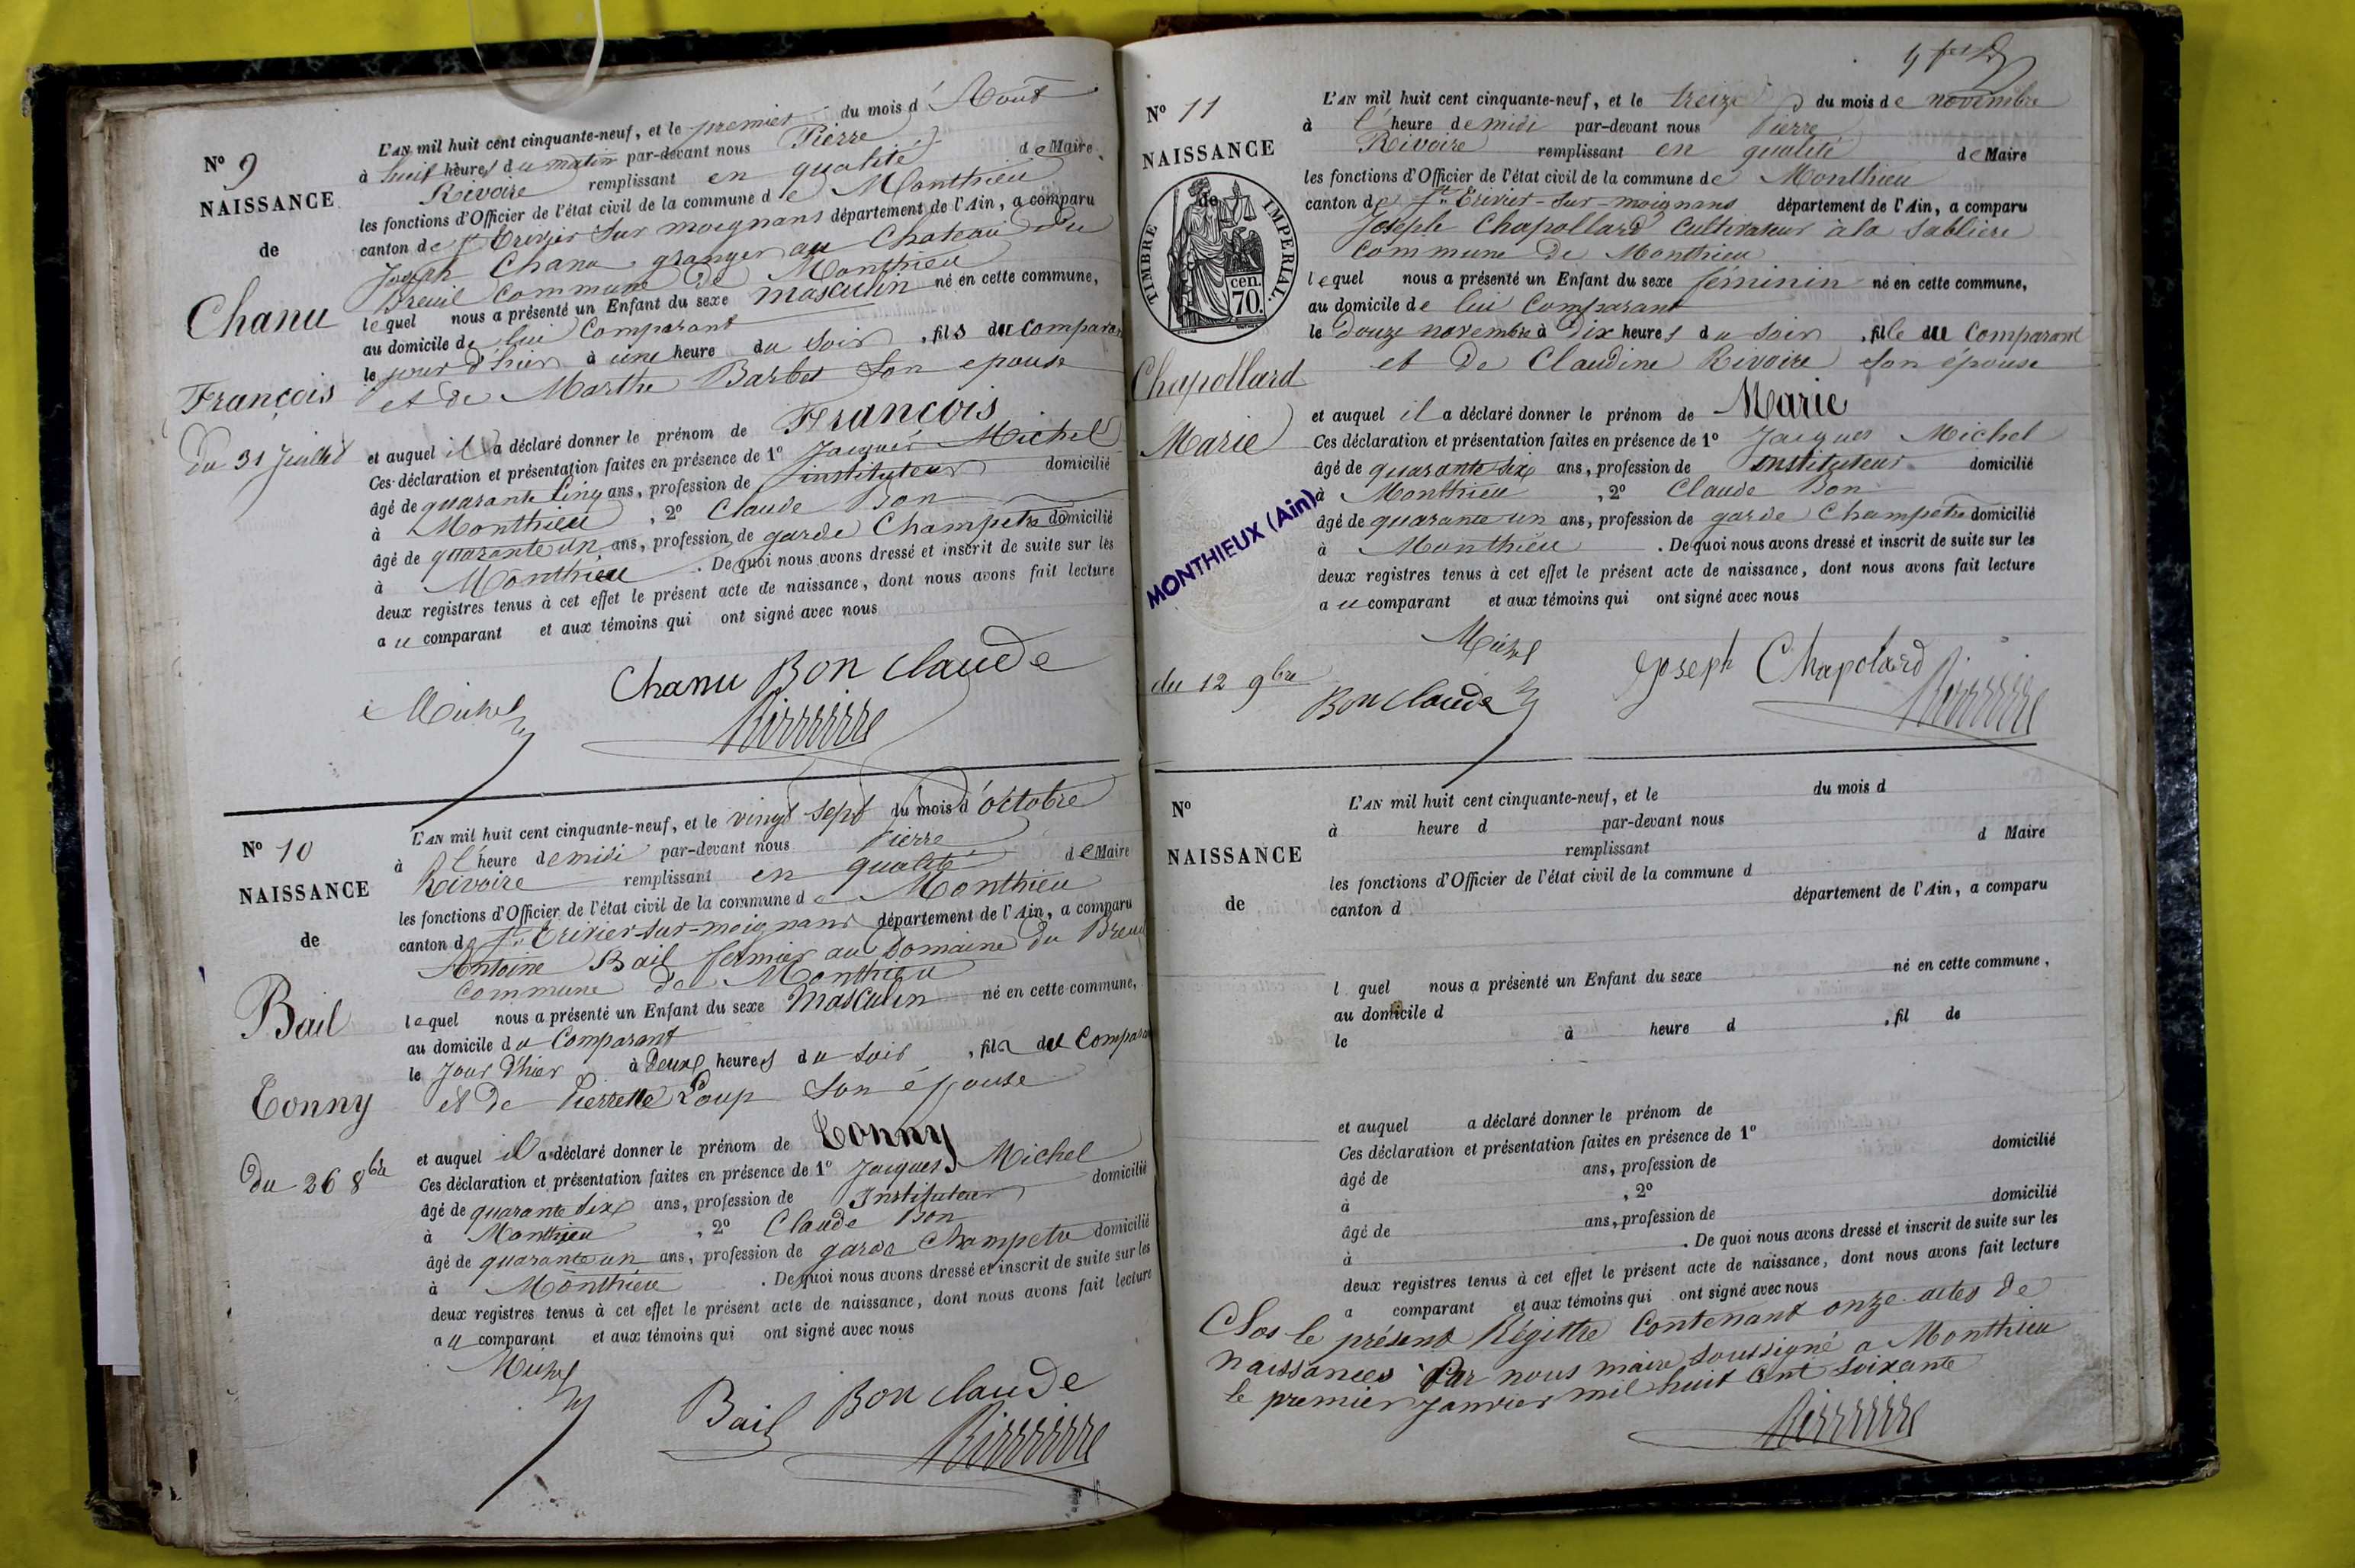 N° 9
NAISSANCE
de
Chanu
François
du 31 Juillet
L'AN mil huit cent cinquante-neuf, et le premier du mois d'Aout
à huit heures du matin par-devant nous Pierre
Rivoire remplissant en qualité de Maire
les fonctions d'Officier de l'état civil de la commune de Monthieu
canton de St Trivier sur moignans département de l'Ain, a comparu
Joseph Chanu granger au Chateau du
Breuil commune de Monthieu
lequel nous a présenté un Enfant du sexe masculin né en cette commune,
au domicile de lui Comparant
le jour d'hier à une heure du soir, fils du Comparant
et de Marthe Barbet son epouse
et auquel il a déclaré donner le prénom de François
Ces déclaration et présentation faites en présence de 1° Jacques Michel
âgé de quarante Cinq ans, profession de instituteur domicilié
à Monthieu, 2° Claude Bon
âgé de quarante un ans, profession de garde Champetre domicilié
à Monthieu. De quoi nous avons dressé et inscrit de suite sur les
deux registres tenus à cet effet le présent acte de naissance, dont nous avons fait lecture
au comparant et aux témoins qui ont signé avec nous
Chanu Bon Claude
Michel
Rivoire
N° 10
NAISSANCE
de
Bail
Tonny
du 26 8bre
L'AN mil huit cent cinquante-neuf, et le vingt-sept du mois d'octobre
à l'heure de midi par-devant nous Pierre
Rivoire remplissant en qualité de Maire
les fonctions d'Officier de l'état civil de la commune de Monthieu
canton de St Trivier-sur-moignans département de l'Ain, a comparu
Antoine Bail fermier au Domaine du Breuil
commune de Monthieu
lequel nous a présenté un Enfant du sexe Masculin né en cette commune,
au domicile du Comparant
le jour d'hier à Deux heures du soir, fils du Comparant
et de Pierrette Loup son épouse
et auquel il a déclaré donner le prénom de Tonny
Ces déclaration et présentation faites en présence de 1° Jacques Michel
âgé de quarante six ans, profession de Instituteur domicilié
à Monthieu, 2° Claude Bon
âgé de quarante un ans, profession de garde Champetre domicilié
à Monthieu. De quoi nous avons dressé et inscrit de suite sur les
deux registres tenus à cet effet le présent acte de naissance, dont nous avons fait lecture
au comparant et aux témoins qui ont signé avec nous
Michel
Bail Bon Claude
Rivoire
N° 11
NAISSANCE
de
TIMBRE IMPERIAL.
70. cen.
Chapollard
Marie
MONTHIEUX (Ain)
du 12 9bre
L'AN mil huit cent cinquante-neuf, et le treize du mois de novembre
à l'heure de midi par-devant nous Pierre
Rivoire remplissant en qualité de Maire
les fonctions d'Officier de l'état civil de la commune de Monthieu
canton de St Trivier-sur-moignans département de l'Ain, a comparu
Joseph Chapollard Cultivateur à la Sablière
Commune de Monthieu
lequel nous a présenté un Enfant du sexe féminin né en cette commune,
au domicile de lui Comparant
le Douze novembre à Dix heures du soir, fille du Comparant
et de Claudine Rivoire son épouse
et auquel il a déclaré donner le prénom de Marie
Ces déclaration et présentation faites en présence de 1° Jacques Michel
âgé de quarante six ans, profession de instituteur domicilié
à Monthieu, 2° Claude Bon
âgé de quarante un ans, profession de garde Champetre domicilié
à Monthieu. De quoi nous avons dressé et inscrit de suite sur les
deux registres tenus à cet effet le présent acte de naissance, dont nous avons fait lecture
au comparant et aux témoins qui ont signé avec nous
Michel
Joseph Chapolard
Bon Claude
Rivoire
N°
NAISSANCE
de
L'AN mil huit cent cinquante-neuf, et le du mois d
à heure d par-devant nous
remplissant d Maire
les fonctions d'Officier de l'état civil de la commune d
canton d département de l'Ain, a comparu
l quel nous a présenté un Enfant du sexe né en cette commune,
au domicile d
le à heure d, fil de
et auquel a déclaré donner le prénom de
Ces déclaration et présentation faites en présence de 1°
âgé de ans, profession de domicilié
à, 2°
âgé de ans, profession de domicilié
à. De quoi nous avons dressé et inscrit de suite sur les
deux registres tenus à cet effet le présent acte de naissance, dont nous avons fait lecture
a comparant et aux témoins qui ont signé avec nous
Clos le présent Régistre Contenant onze actes de
naissances Par nous maire soussigné a Monthieu
le premier Janvier mil huit Cent soixante
Rivoire